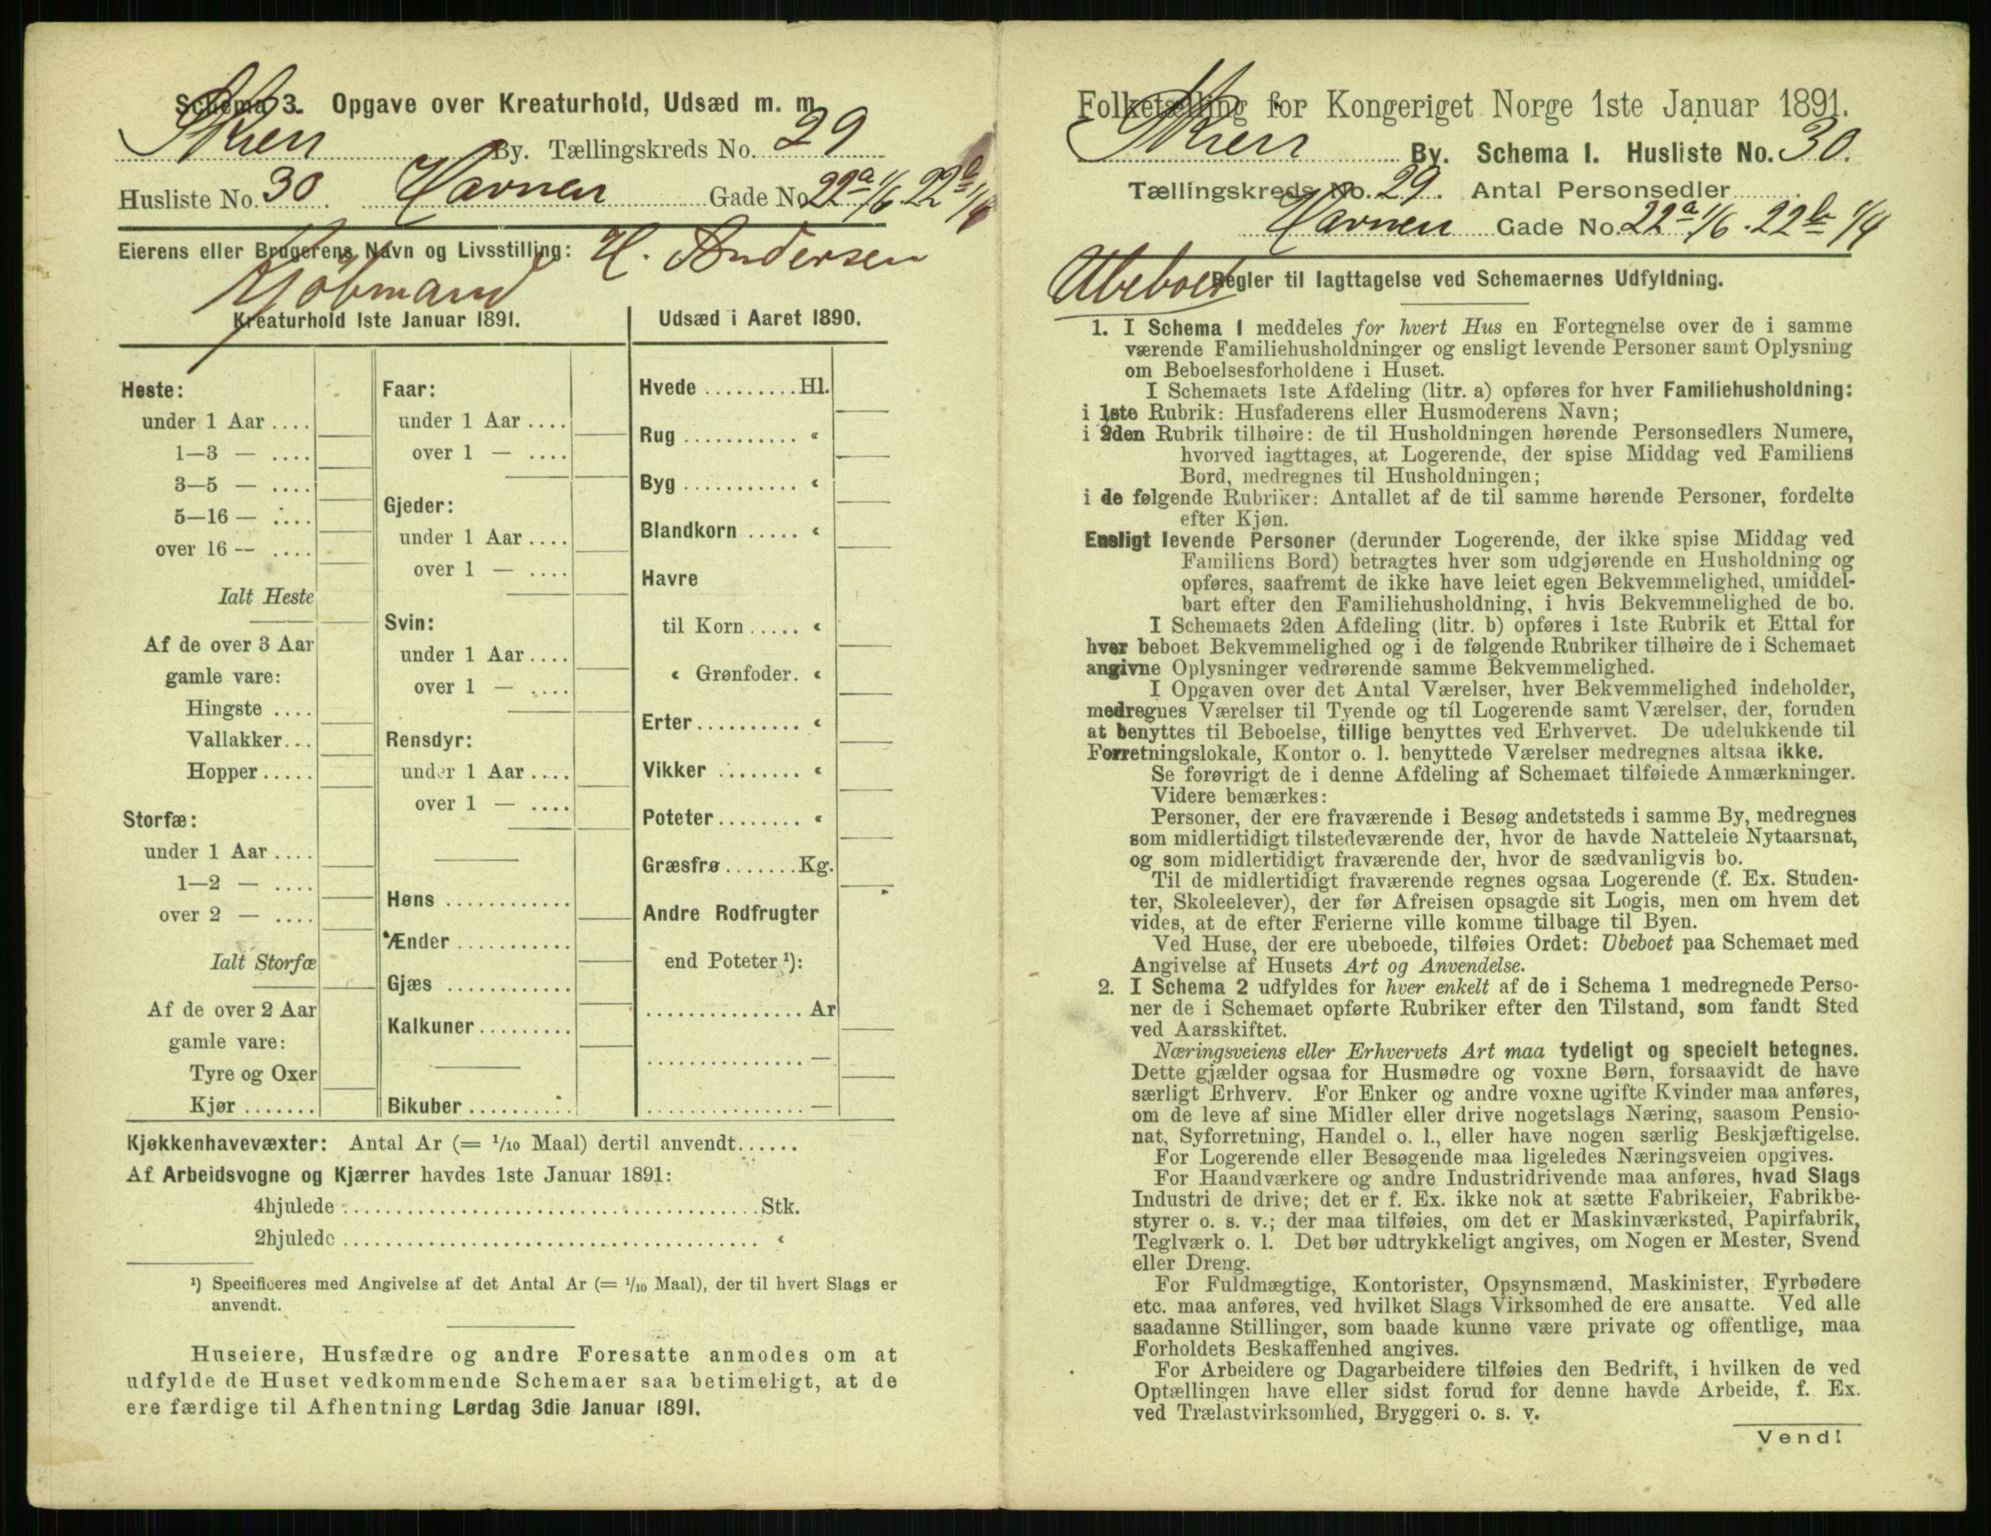 Schema 3. Opgave over Kreaturhold, Udsæd m. m.
Skien By. Tællingskreds No. 29
Husliste No. 30. Havnen Gade No. 22a 1/6. 22b 1/4
Eierens eller Brugerens Navn og Livsstilling: H. Andersen
Kjöbmand
Kreaturhold 1ste Januar 1891.
Heste:
under 1 Aar ....
1—3 — ....
3—5 — ....
5—16 — ....
over 16 — ....
Ialt Heste
Af de over 3 Aar
gamle vare:
Hingste ....
Vallakker...
Hopper.....
Storfæ:
under 1 Aar ....
1—2 — ....
over 2 — ....
Ialt Storfæ
Af de over 2 Aar
gamle vare:
Tyre og Oxer
Kjør .......
Faar:
under 1 Aar ....
over 1 — ....
Gjeder:
under 1 Aar ....
over 1 — ....
Svin:
under 1 Aar ....
over 1 — ....
Rensdyr:
under 1 Aar ....
over 1 — ....
Høns ............
Ænder ...........
Gjæs ............
Kalkuner.........
Bikuber ..........
Udsæd i Aaret 1890.
Hvede .........Hl.
Rug ........... «
Byg ........... «
Blandkorn ..... «
Havre
til Korn ..... «
« Grønfoder. «
Erter.......... «
Vikker ........ «
Poteter........ «
Græsfrø .......Kg.
Andre Rodfrugter
end Poteter ¹):
............... Ar
............... —
............... —
Kjøkkenhavevæxter: Antal Ar (= 1/10 Maal) dertil anvendt......
Af Arbeidsvogne og Kjærrer havdes 1ste Januar 1891:
4hjulede .......................................Stk.
2hjulede ....................................... «
¹) Specificeres med Angivelse af det Antal Ar (= 1/10 Maal), der til hvert Slags er
anvendt.
Huseiere, Husfædre og andre Foresatte anmodes om at
udfylde de Huset vedkommende Schemaer saa betimeligt, at de
ere færdige til Afhentning Lørdag 3die Januar 1891.
Folketælling for Kongeriget Norge 1ste Januar 1891.
Skien By. Schema I. Husliste No. 30.
Tællingskreds No. 29. Antal Personsedler.......
Havnen Gade No. 22a 1/6. 22b 1/4
Ubeboet
Regler til Iagttagelse ved Schemaernes Udfyldning.
1. I Schema I meddeles for hvert Hus en Fortegnelse over de i samme
værende Familiehusholdninger og ensligt levende Personer samt Oplysning
om Beboelsesforholdene i Huset.
I Schemaets 1ste Afdeling (litr. a) opføres for hver Familiehusholdning:
i 1ste Rubrik: Husfaderens eller Husmoderens Navn;
i 2den Rubrik tilhøire: de til Husholdningen hørende Personsedlers Numere,
hvorved iagttages, at Logerende, der spise Middag ved Familiens
Bord, medregnes til Husholdningen;
i de følgende Rubriker: Antallet af de til samme hørende Personer, fordelte
efter Kjøn.
Ensligt levende Personer (derunder Logerende, der ikke spise Middag ved
Familiens Bord) betragtes hver som udgjørende en Husholdning og
opføres, saafremt de ikke have leiet egen Bekvemmelighed, umiddel-
bart efter den Familiehusholdning, i hvis Bekvemmelighed de bo.
I Schemaets 2den Afdeling (litr. b) opføres i 1ste Rubrik et Ettal for
hver beboet Bekvemmelighed og i de følgende Rubriker tilhøire de i Schemaet
angivne Oplysninger vedrørende samme Bekvemmelighed.
I Opgaven over det Antal Værelser, hver Bekvemmelighed indeholder,
medregnes Værelser til Tyende og til Logerende samt Værelser, der, foruden
at benyttes til Beboelse, tillige benyttes ved Erhvervet. De udelukkende til
Forretningslokale, Kontor o. l. benyttede Værelser medregnes altsaa ikke.
Se forøvrigt de i denne Afdeling af Schemaet tilføiede Anmærkninger.
Videre bemærkes:
Personer, der ere fraværende i Besøg andetsteds i samme By, medregnes
som midlertidigt tilstedeværende der, hvor de havde Natteleie Nytaarsnat,
og som midlertidigt fraværende der, hvor de sædvanligvis bo.
Til de midlertidigt fraværende regnes ogsaa Logerende (f. Ex. Studen-
ter, Skoleelever), der før Afreisen opsagde sit Logis, men om hvem det
vides, at de efter Ferierne ville komme tilbage til Byen.
Ved Huse, der ere ubeboede, tilføies Ordet: Ubeboet paa Schemaet med
Angivelse af Husets Art og Anvendelse.
2. I Schema 2 udfyldes for hver enkelt af de i Schema 1 medregnede Perso-
ner de i Schemaet opførte Rubriker efter den Tilstand, som fandt Sted
ved Aarsskiftet.
Næringsveiens eller Erhvervets Art maa tydeligt og specielt betegnes.
Dette gjælder ogsaa for Husmødre og voxne Børn, forsaavidt de have
særligt Erhverv. For Enker og andre voxne ugifte Kvinder maa anføres,
om de leve af sine Midler eller drive nogetslags Næring, saasom Pensio-
nat, Syforretning, Handel o. l., eller have nogen særlig Beskjæftigelse.
For Logerende eller Besøgende maa ligeledes Næringsveien opgives.
For Haandværkere og andre Industridrivende maa anføres, hvad Slags
Industri de drive; det er f. Ex. ikke nok at sætte Fabrikeier, Fabrikbe-
styrer o. s. v.; der maa tilføies, om det er Maskinværksted, Papirfabrik,
Teglværk o. l. Det bør udtrykkeligt angives, om Nogen er Mester, Svend
eller Dreng.
For Fuldmægtige, Kontorister, Opsynsmænd, Maskinister, Fyrbødere
etc. maa anføres, ved hvilket Slags Virksomhed de ere ansatte. Ved alle
saadanne Stillinger, som baade kunne være private og offentlige, maa
Forholdets Beskaffenhed angives.
For Arbeidere og Dagarbeidere tilføies den Bedrift, i hvilken de ved
Optællingen have eller sidst forud for denne havde Arbeide, f. Ex.
ved Trælastvirksomhed, Bryggeri o. s. v.
Vend!